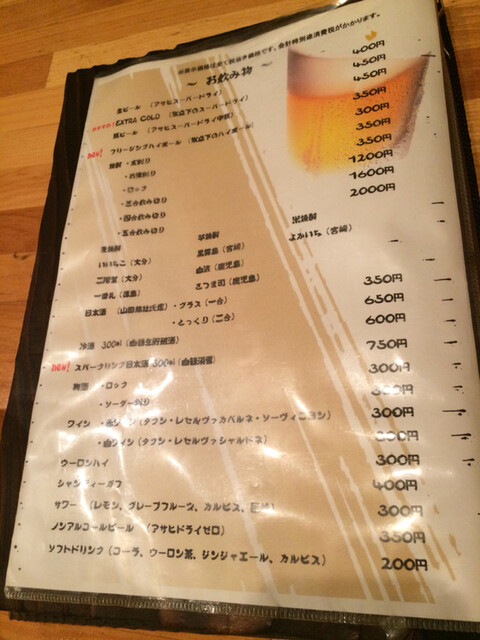 ※表示価格は全て税抜き価格です。会計時別途消費税がかかります。
～ お飲み物 ～
生ビール (アサヒスーパードライ) 400円
EXTRA COLD (氷点下のスーパードライ) 450円
瓶ビール (アサヒスーパードライ中瓶) 450円
New! フリージングハイボール (氷点下のハイボール) 350円
焼酎・水割り 300円
・お湯割り 350円
・ロック 350円
・三合飲み切り 1200円
・四合飲み切り 1600円
・五合飲み切り 2000円
麦焼酎 芋焼酎 米焼酎
いいちこ (大分) 黒霧島 (宮崎) よかいち (宮崎)
二階堂 (大分) 白波 (鹿児島)
一番札 (福島) さつま司 (鹿児島)
日本酒 ・グラス (一合) 350円
・とっくり (二合) 650円
冷酒 300ml 600円
New! スパークリング日本酒 300ml 750円
梅酒 ・ロック 300円
・ソーダー割り 350円
ワイン ・赤ワイン (タクン・レセルヴァカベルネ・ソーヴィニヨン) 300円
・白ワイン (タクン・レセルヴァシャルドネ) 300円
ウーロンハイ 300円
シャンディーガフ 400円
サワー (レモン、グレープフルーツ、カルピス、) 300円
ノンアルコールビール (アサヒドライゼロ) 350円
ソフトドリンク (コーラ、ウーロン茶、ジンジャエール、カルピス) 200円